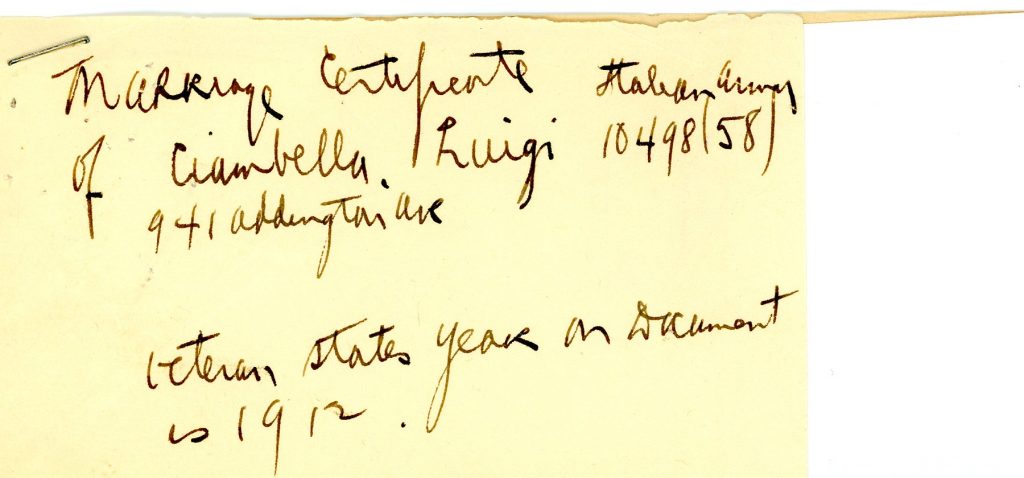 Marriage Certificate Italian Army
of Ciambella, Luigi 10498(58)
941 Addington Ave
Veteran states year on Document
is 1912.